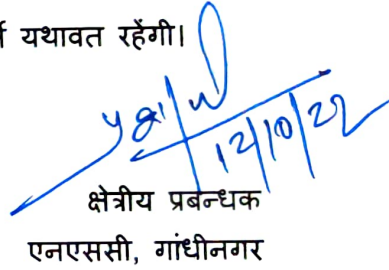 यथावत रहेंगी।
12/10/22
क्षेत्रीय प्रबन्धक
एनएससी, गांधीनगर